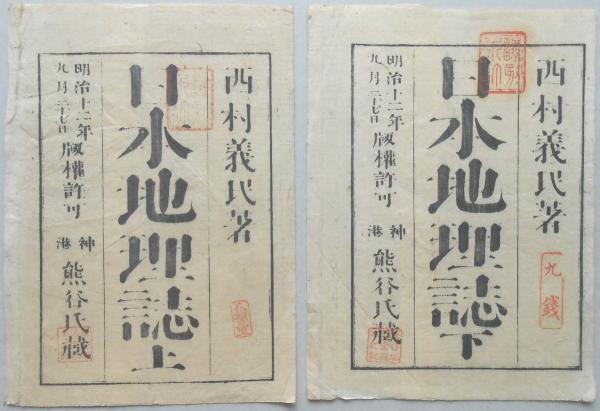 西村義民著
日本地理誌上
明治十二年
九月二十七日
版權許可
神港
熊谷氏蔵
西村義民著
日本地理誌下
明治十二年
九月二十七日
版權許可
神港
熊谷氏蔵
九錢